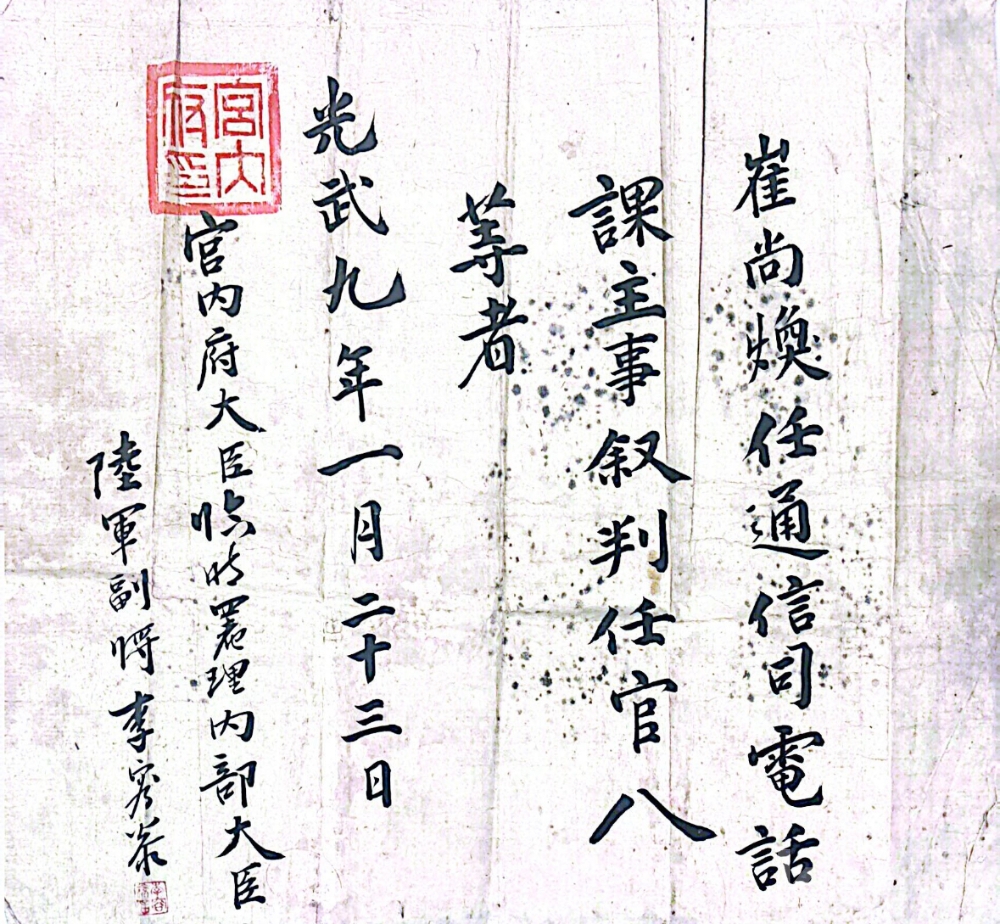 崔尚煥任通信司電話
課主事叙判任官八
等者
光武九年一月二十三日
宮內府印
宮內府大臣臨時署理內部大臣
陸軍副將李容泰